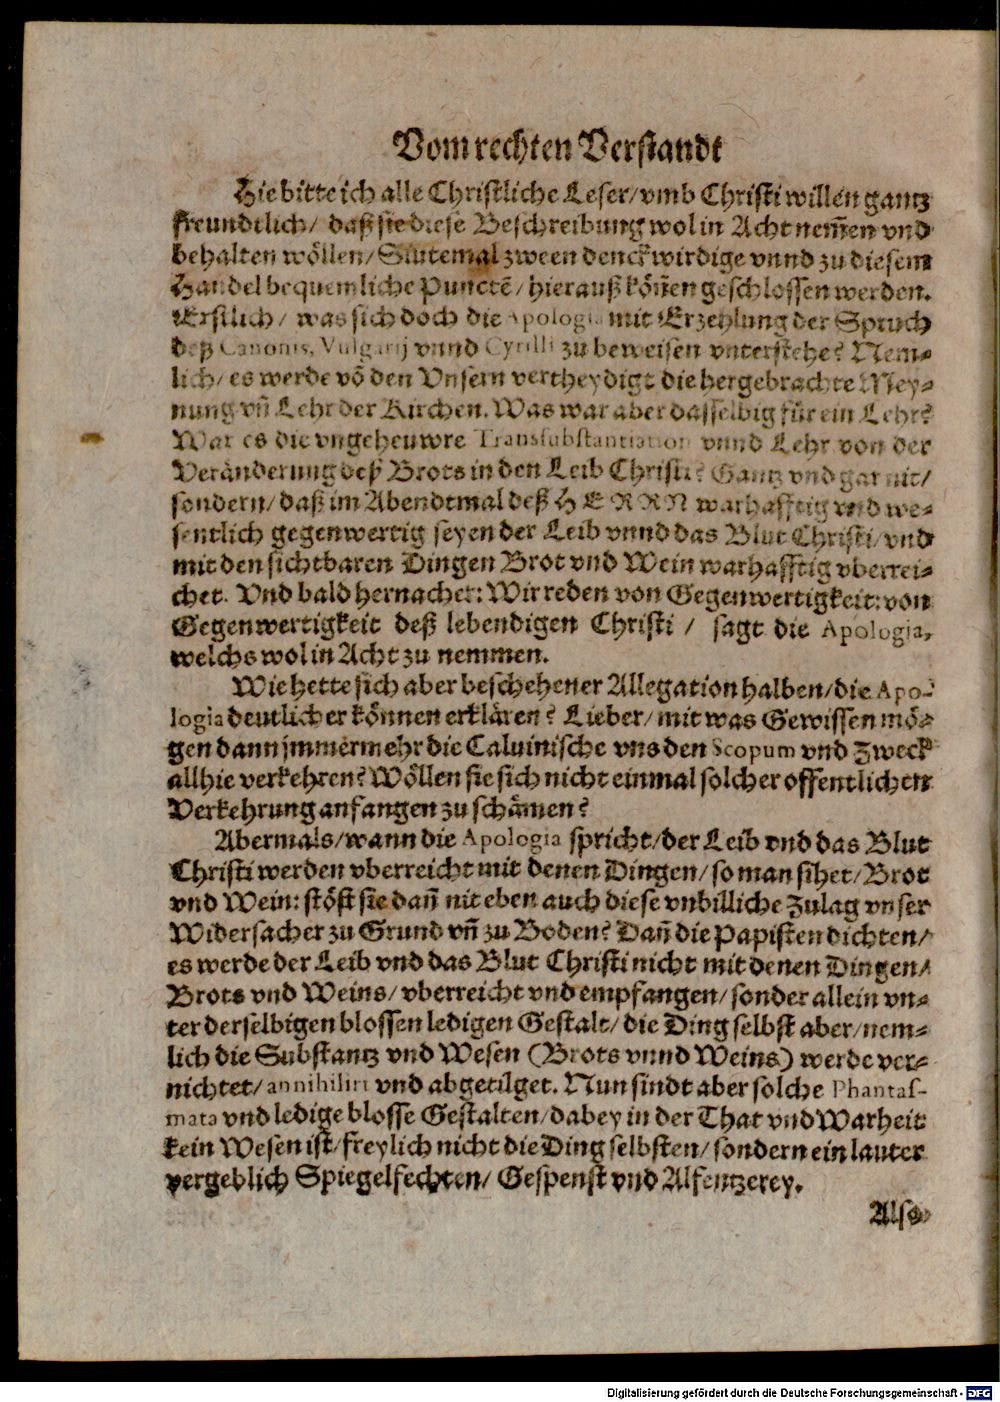 Vom rechten Verstandt
Hie bitte ich alle Christliche Leser/ vmb Christi willen gantz
freundtlich/ daß sie diese Beschreibung wol in Acht nem̃en vnd
behalten wöllen/ Sintemal zween denckwirdige vnnd zu diesem
Handel bequemliche Punctẽ/ hierauß köñen geschlossen werden.
Erstlich/ was sich doch die Apologia mit Erzehlung der Spruch
deß Canonis, Vulgarij vnnd Cyrilli zu beweisen vnterstehe? Nem-
lich/ es werde võ den Vnsern vertheydigt die hergebrachte Mey-
nung vñ Lehr der Kirchen. Was war aber dasselbig für ein Lehr?
War es die vngeheuwre Transsubstantiation vnnd Lehr von der
Veränderung deß Brots in den Leib Christi? Gantz vnd gar nit/
sondern/ daß im Abendtmal deß HERRN warhafftig vnd we-
sentlich gegenwertig seyen der Leib vnnd das Blut Christi/ vnd
mit den sichtbaren Dingen Brot vnd Wein warhafftig vberrei-
chet. Vnd bald hernacher: Wir reden von Gegenwertigkeit: von
Gegenwertigkeit deß lebendigen Christi / sagt die Apologia,
welchs wol in Acht zu nemmen.
Wie hette sich aber beschehener Allegation halben/ die Apo-
logia deutlicher können erklären? Lieber/ mit was Gewissen mö-
gen dann jmmermehr die Caluinische vns den Scopum vnd Zweck
allhie verkehren? Wöllen sie sich nicht einmal solcher offentlichen
Verkehrung anfangen zu schämen?
Abermals/ wann die Apologia spricht/ der Leib vnd das Blut
Christi werden vberreicht mit denen Dingen/ so man sihet/ Brot
vnd Wein: stöst sie dañ nit eben auch diese vnbilliche Zulag vnser
Widersacher zu Grund vñ zu Boden? Dañ die Papisten dichten/
es werde der Leib vnd das Blut Christi nicht mit denen Dingen/
Brots vnd Weins/ vberreicht vnd empfangen/ sonder allein vn-
ter derselbigen blossen ledigen Gestalt/ die Ding selbst aber/ nem-
lich die Substantz vnd Wesen (Brots vnnd Weins) werde ver-
nichtet/ annihilirt vnd abgetilget. Nun sindt aber solche Phantas-
mata vnd ledige blosse Gestalten/ dabey in der That vnd Warheit
kein Wesen ist/ freylich nicht die Ding selbsten/ sondern ein lauter
vergeblich Spiegelfechten/ Gespenst vnd Alfentzerey.
Also
Digitalisierung gefördert durch die Deutsche Forschungsgemeinschaft - DFG